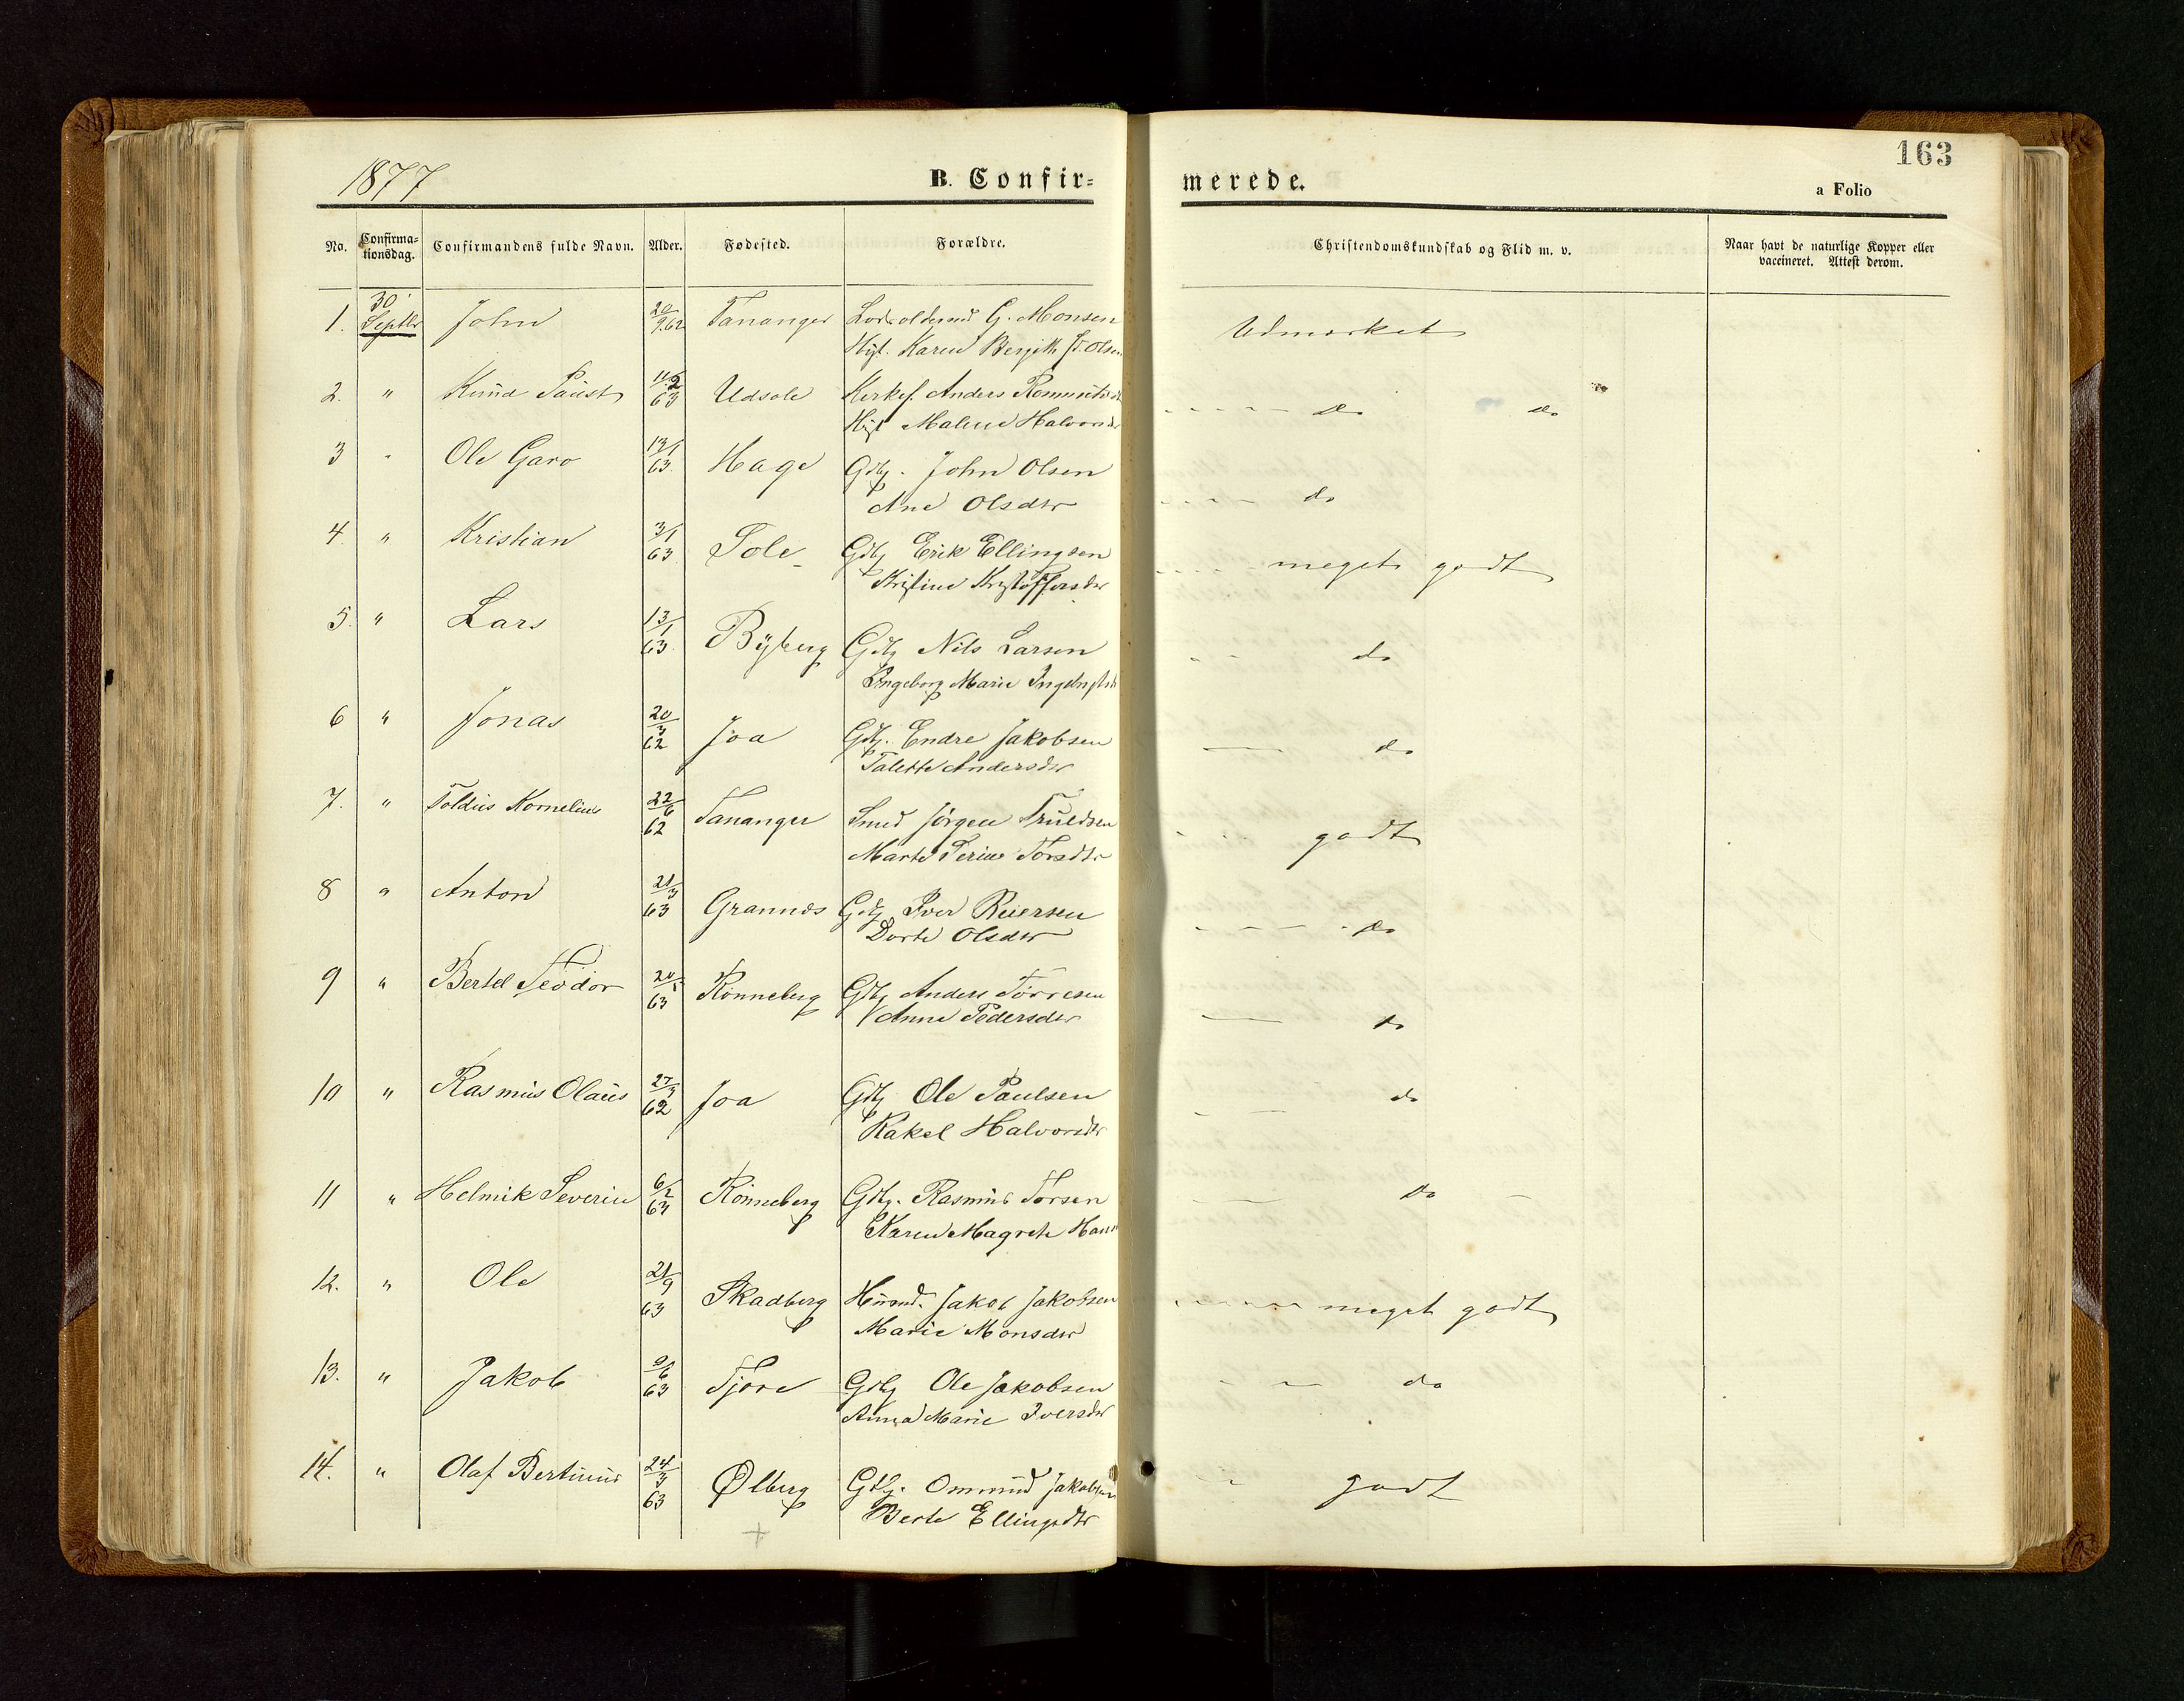 163
1877
B. Confir=
merede.
a Folio
No.
Confirma=
tionsdag.
Confirmandens fulde Navn.
Alder.
Fødested.
Forældre.
Christendomskundskab og Flid m. v.
Naar havt de naturlige Kopper eller
vaccineret. Attest derom.
1. 30 Septbr John 20/9.62 Tananger Lodsoldermd G. Monsen
Karen Bergith Olsen
Udmærket
2. " Knud Paust 63 Udsole Kirkes. Anders
Malene Halvorsdr
do do
3 " Ole Garo 13/1 63 Hage Gdbr. John Olsen
Ane Olsdtr
do
4 " Kristian 3/1 63 Sole Gdbr Erik Ellingsen
Kristine Kristoffersdtr
meget godt
5. " Lars 13/1 63 Byberg Gdbr Nils Larsen
Ingeborg Marie
do
6 " Jonas 20/3 62 Joa Gdbr. Endre Jakobsen
Talette Andersdr
do
7. " Toldius Kornelius 22/6 62 Tananger Smed Jørgen Truldsen
Marte Serine Torsdtr
godt
8 " Anton 21/3 63 Grannes Gdbr Iver Reiersen
Dorte Olsdtr
do
9 " Bertel Teodor 20/5 63 Rönneberg Gdbr Anders Törresen
Anne Pedersdtr
do
10 " Rasmus Olaus 27/3 62 Joa Gdbr Ole Paulsen
Rakel Halvorsdtr
do
11 " Helmik Severin 6/2 63 Rönneberg Gdbr. Rasmus Torsen
Karen Magrete
do
12. " Ole 21/9 63 Skadberg Husmd. Jakob Jakobsen
Marie Monsdtr
meget godt
13. " Jakob 9/6 63 Tjore Gdbr Ole Jakobsen
Anna Marie Iversdtr
do
14. " Olaf Bertinius 24/3 63 Ølberg Gdbr. Ommund Jakobsen
Berte Ellingsdtr
godt
+